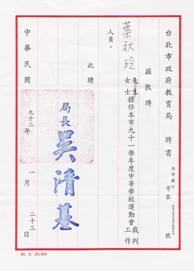 台北市政府教育局 聘書
字第 號
茲敦聘
葉秋玲 先生
女士擔任本市九十一學年度中等學校運動會裁判
工作
人員。
此聘
局長 吳清基
中華民國 九十二年 一月 二十三日